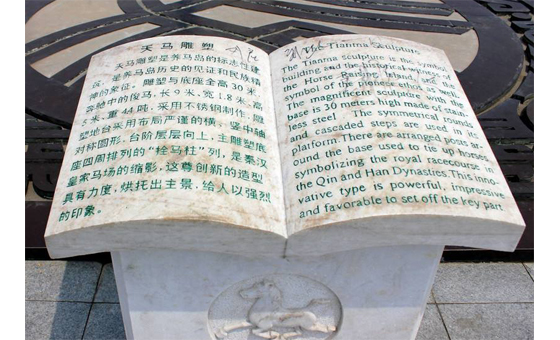 天马雕塑
天马雕塑是养马岛的标志性建
筑，是养马岛历史的见证和民族精
神的象征。雕塑与底座全高30米，
奔驰中的骏马，长9米，宽1.8米，高
米，重44吨，采用不锈钢制作，雕
塑地台采用布局严谨的横、竖中轴
对称图形，台阶层层向上，主雕塑底
座四周排列的“拴马柱”列，是秦汉
皇家马场的缩影，这尊创新的造型
具有力度，烘托出主景，给人以强烈
的印象。
The Tianma Sculpture
The Tianma sculpture is the symbolic
building and the historical witness of
the Horse Raising Island, and the
symbol of the pioneer ethos as well.
The magnificent sculpture with the
base is 30 meters high made of stain-
less steel. The symmetrical transit
and cascading steps are used in its
platform. There are arranged posts ar-
ound the base used to tie up horses,
symbolizing the royal racecourse in
the Qin and Han Dynasties. This inno-
vative type is powerful, impressive
and favorable to set off the key part